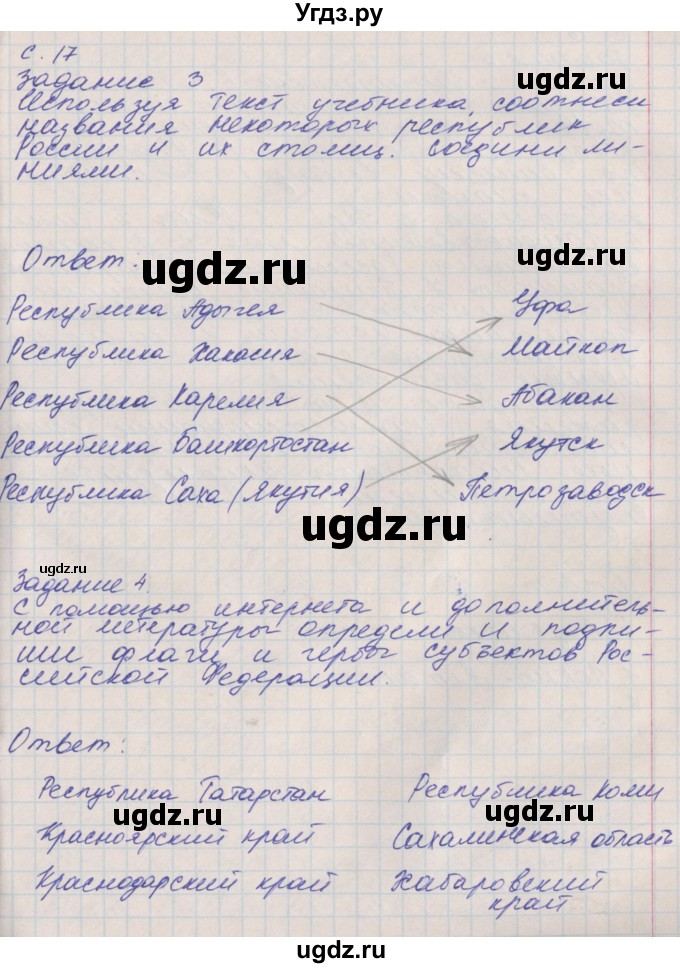 Угдз.ру
с. 17
ugdz.ru
Задание 3
ugdz.ru
Используя текст учебника, соотнеси
названия некоторых республик
России и их столиц. Соедини ли-
ниями.
Ответ:
ugdz.ru
ugdz.ru
Республика Адыгея Уфа
Республика Хакасия Майкоп
Республика Карелия Абакан
Республика Башкортостан Якутск
Республика Саха (Якутия) Петрозаводск
ugdz.ru
ugdz.ru
Задание 4.
С помощью интернета и дополнитель-
ной литературы определи и подпи-
ши флаги и гербы субъектов Рос-
сийской Федерации.
ugdz.ru
Ответ:
Республика Татарстан Республика Коми
Красноярский край Сахалинская область
Краснодарский край Хабаровский
край
ugdz.ru
ugdz.ru